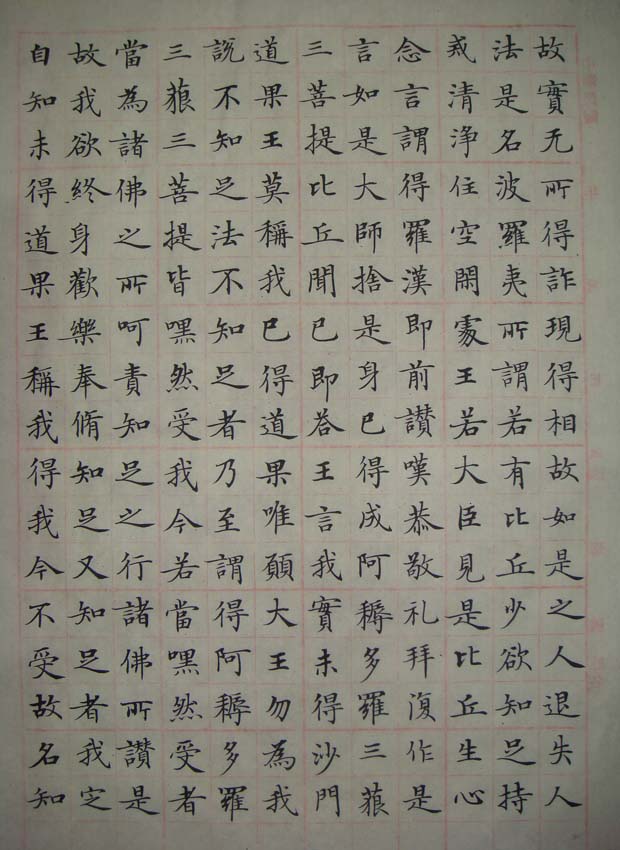 故實无所得詐現得相故如是之人退失人
法是名波羅夷所謂若有比丘少欲知足持
戒清淨住空閑處王若大臣見是比丘生心
念言謂得羅漢即前讃嘆恭敬礼拜復作是
言如是大師捨是身已得成阿耨多羅三藐
三菩提比丘聞已即答王言我實未得沙門
道果王莫稱我已得道果唯願大王勿為我
說不知足法不知足者乃至謂得阿耨多羅
三藐三菩提皆嘿然受我今若當嘿然受者
當為諸佛之所呵責知足之行諸佛所讃是
故我欲終身歡樂奉脩知足又知足者我定
自知未得道果王稱我得我今不受故名知